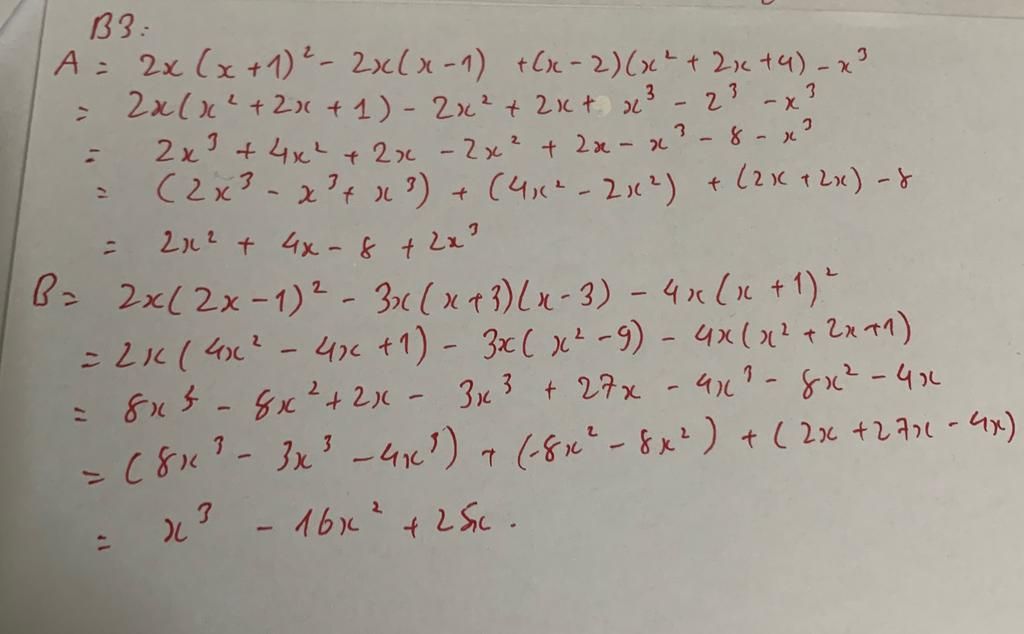 B3:
A = 2x(x+1)² - 2x(x-1) + (x-2)(x² + 2x + 4) - x³
= 2x(x² + 2x + 1) - 2x² + 2x + x³ - 2³ - x³
= 2x³ + 4x² + 2x - 2x² + 2x - x³ - 8 - x³
= (2x³ - x³ + x³) + (4x² - 2x²) + (2x + 2x) - 8
= 2x² + 4x - 8 + 2x³
B = 2x(2x-1)² - 3x(x+3)(x-3) - 4x(x+1)²
= 2x(4x² - 4x + 1) - 3x(x² - 9) - 4x(x² + 2x + 1)
= 8x³ - 8x² + 2x - 3x³ + 27x - 4x³ - 8x² - 4x
= (8x³ - 3x³ - 4x³) + (-8x² - 8x²) + (2x + 27x - 4x)
= x³ - 16x² + 25x.